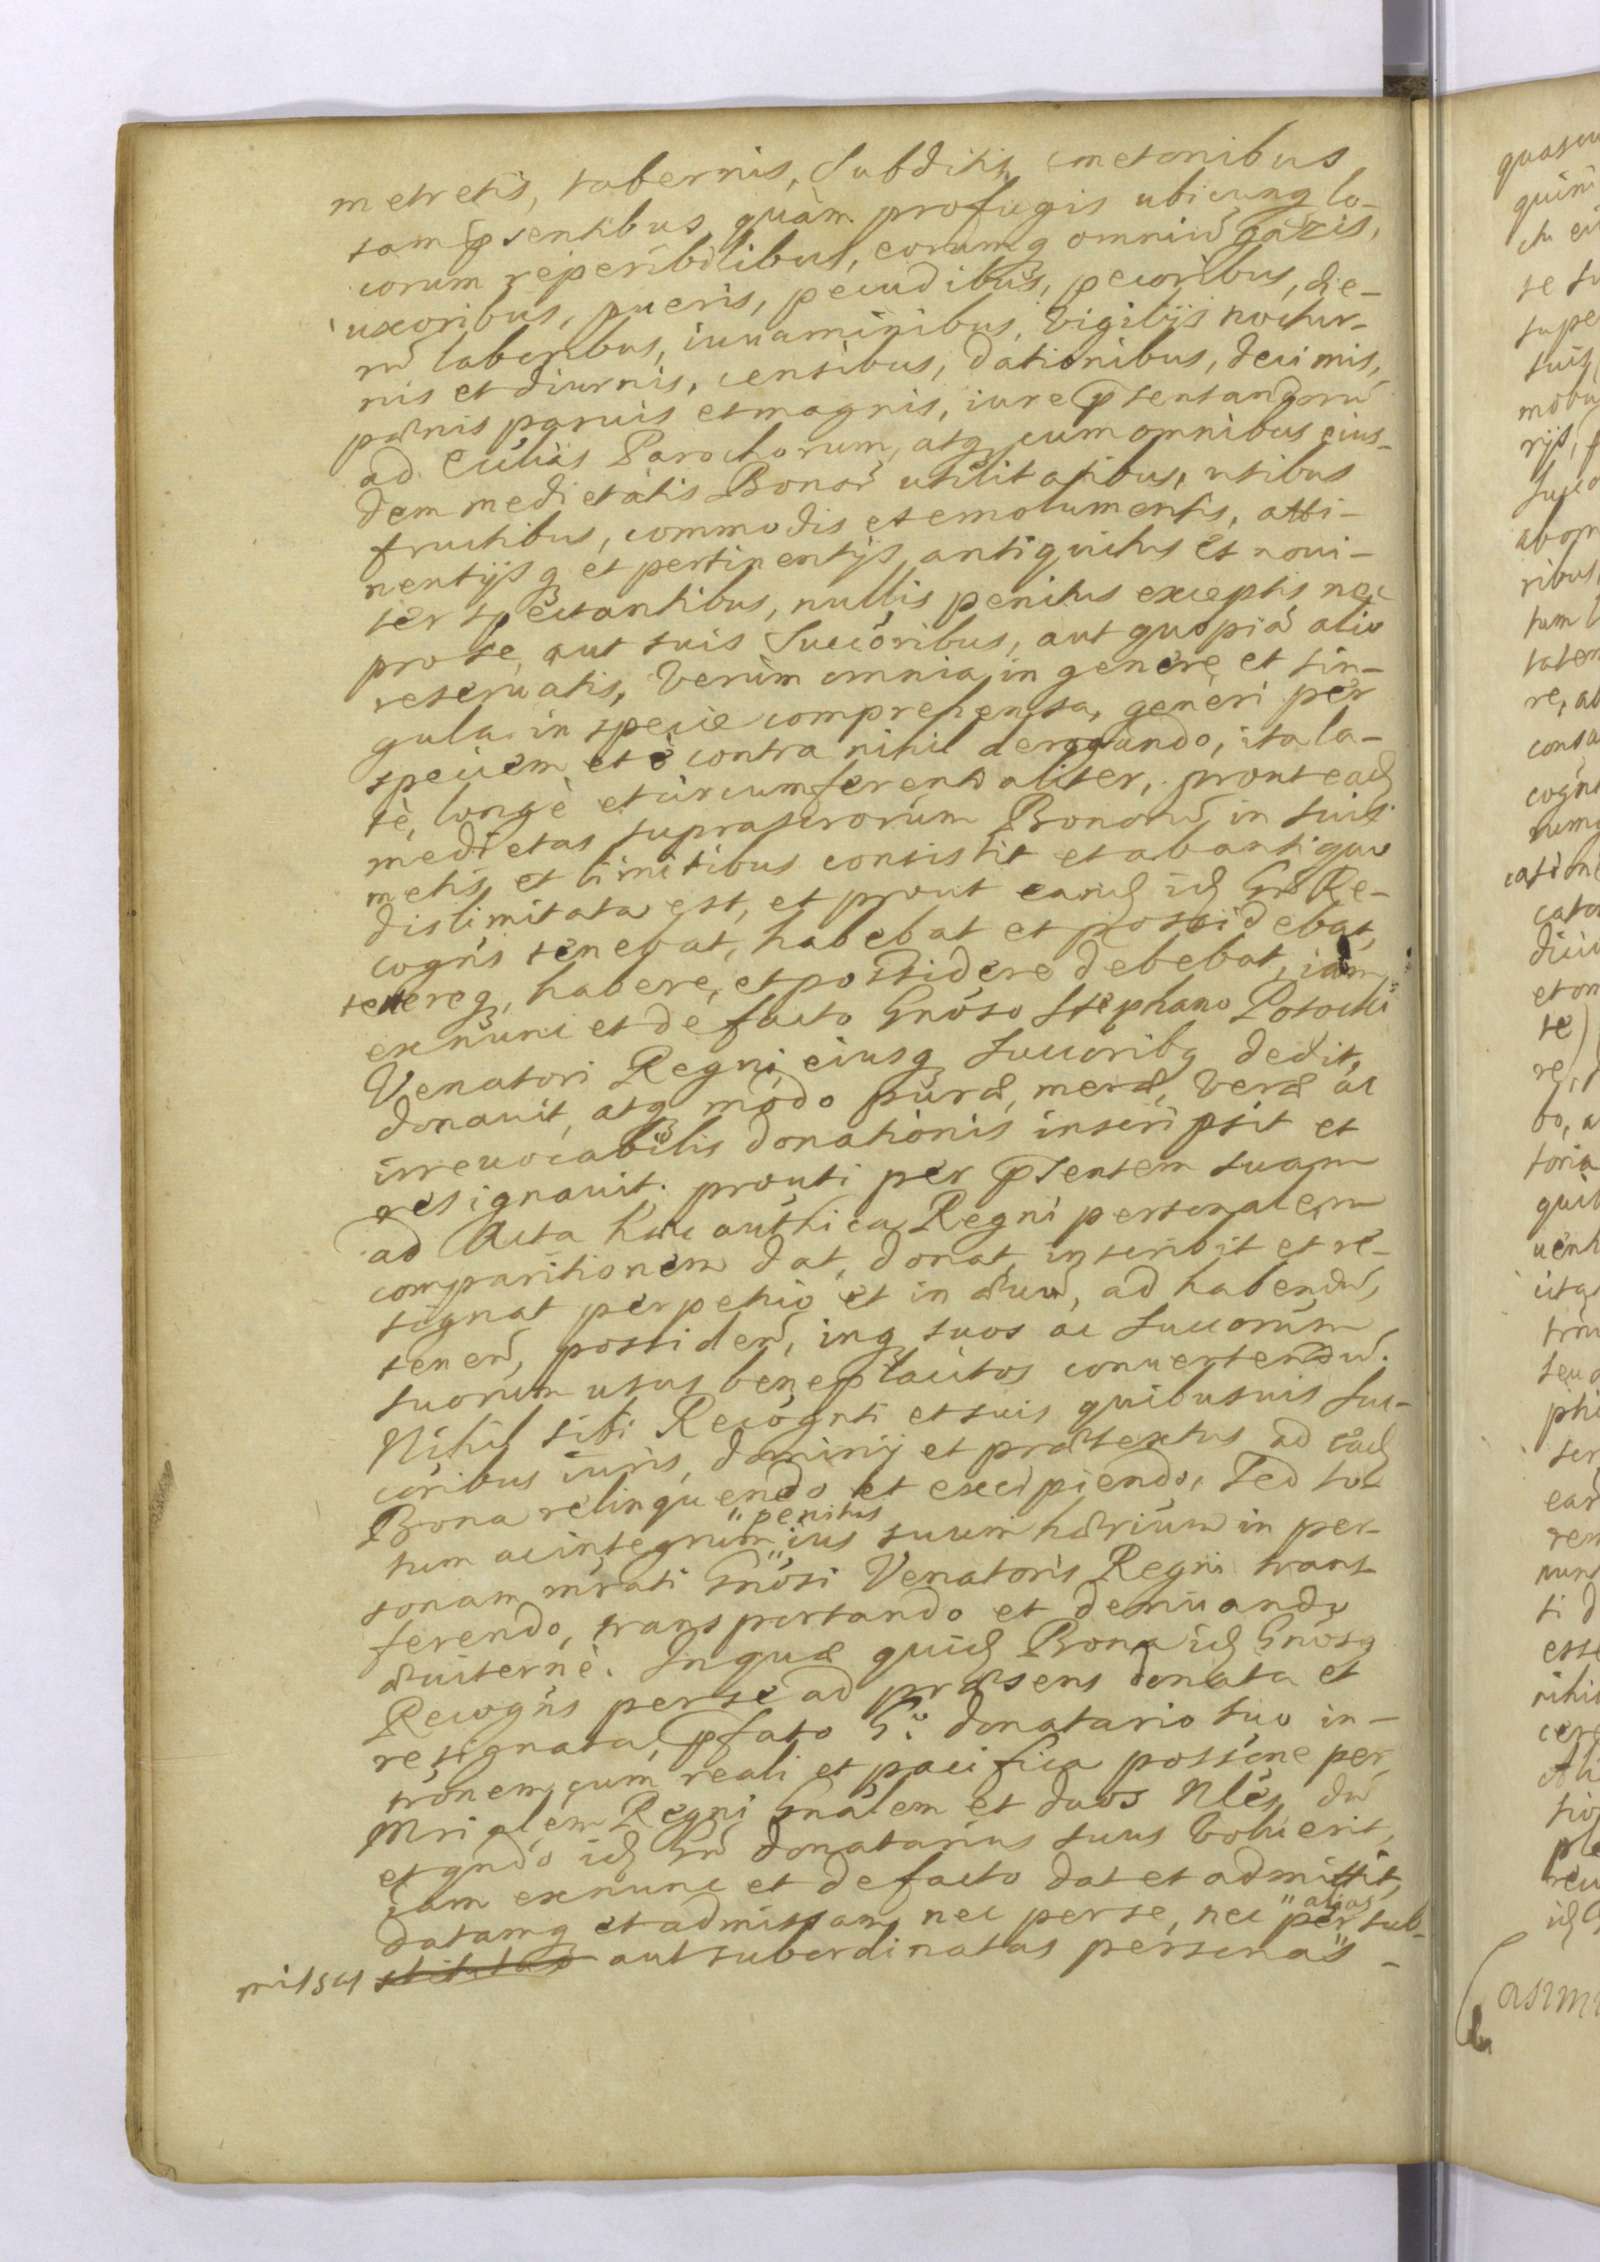 metretis, tabernis, Subditis, cmetonibus
tam pñsentibus, quàm profugis ubicunq lo-
corum reperibilibus, eorumq omniũ gazis,
uxoribus, pueris, pecudibus, pecoribus, die-
rũ laboribus, iuuaminibus, Vigilijs noctur-
nis et diurnis, censibus, dationibus, decimis,
pænis paruis et magnis, iure pñsentandorũ
ad Ecclias Parochorum, atq cum omnibus eius-
dem medietatis Bonorũ utilitatibus, usibus
fructibus, commodis et emolumentis, atti-
nentijsq et pertinentijs antiquitus et noui-
ter spectantibus, nullis penitus exceptis nec
pro se, aut suis Succoribus, aut quopiã alio
reseruatis, Verùm omnia in genere et sin-
gula in specie comprehensa, generi per
speciem et è contra nihil derogando, ita la-
tè, longè et circumferentialiter, prout ead
medietas suprascrorúm Bonorũ in suis
metis et limitibus consistit et ab antiquo
dislimitata est, et prout eand id Gñs Re-
cogñs tenebat, habebat et possidebat,
tenereq, habere, et possidere debebat, iam
ex nunc et de facto Gnóso Stephano Potocki
Venatori Regni, eiusq Succoribq dedit,
donauit, atq modo puræ, meræ, Veræ ac
irreuocabilis donationis inscripsit et
resignauit: prouti per pñsentem suam
ad Acta hæc authica Regni personalem
comparitionem dat, donat, inscribit et re-
signat perpetuò et in æuũ, ad habendũ,
tenenũ, possidenũ, inq suos ac Succorúm
suorum usus beneplacitos conuertendũ.
Nihil sibi Recognti et suis quibusuis Suc-
coribus iuris, dominij et prætextus ad ead
Bona relinquendo et excipiendo, Sed to-
tum ac integrum " penitus " ius suum hærium in per-
sonam mrati Gnósi Venatoris Regni trans-
ferendo, transportando et deriuando
æuiternè. In quæ quid Bona id Gnósq
Recogñs per se ad præsens donata et
resignata, pfato Gº donatario suo in-
tronem cum reali et pacifica possióne per
Mrialem Regni Gnálem et duos Nles, dũ
et qndo id Gñ donatarius suus Voluerit,
iam ex nunc et de facto dat et admittit,
datamq et admissam, nec per se, nec " alias " per sub-
misas stitutas aut subordinatas personas -